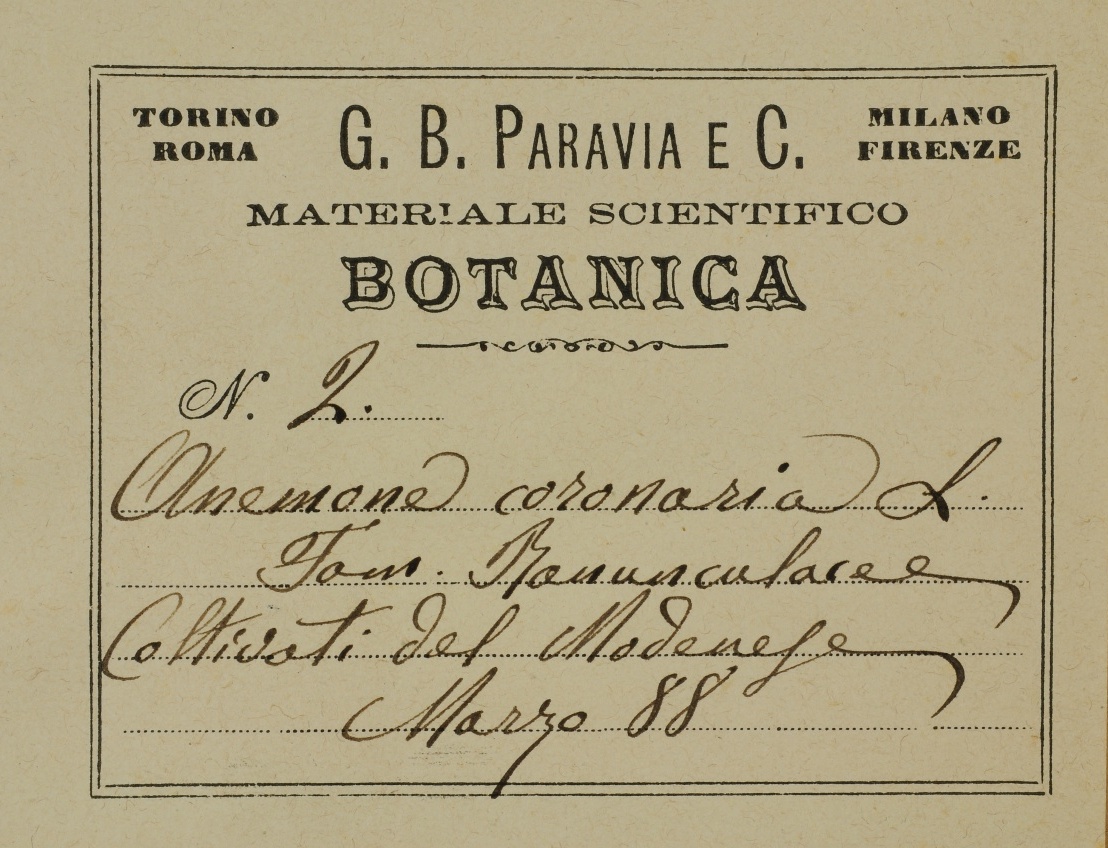 TORINO G. B. PARAVIA E C. MILANO
ROMA FIRENZE
MATERIALE SCIENTIFICO
BOTANICA
N. 2.
Anemone coronaria L.
Fam. Ranunculacee
Coltivati del Modenese
Marzo 88